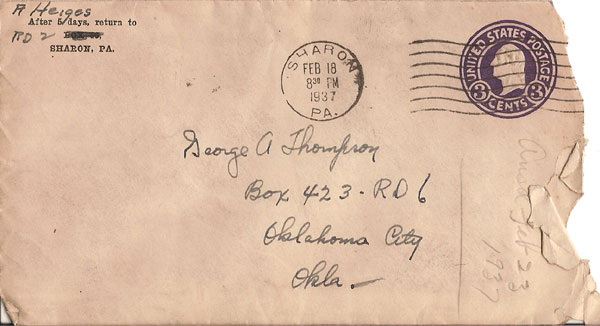 R Heiges
After 5 days, return to
RD 2
SHARON, PA.
SHARON
FEB 18
8 30 PM
1937
PA.
UNITED STATES POSTAGE
3 CENTS 3
George A Thompson
Box 423 - RD 6
Oklahoma City
Okla.
Feb 23
1937